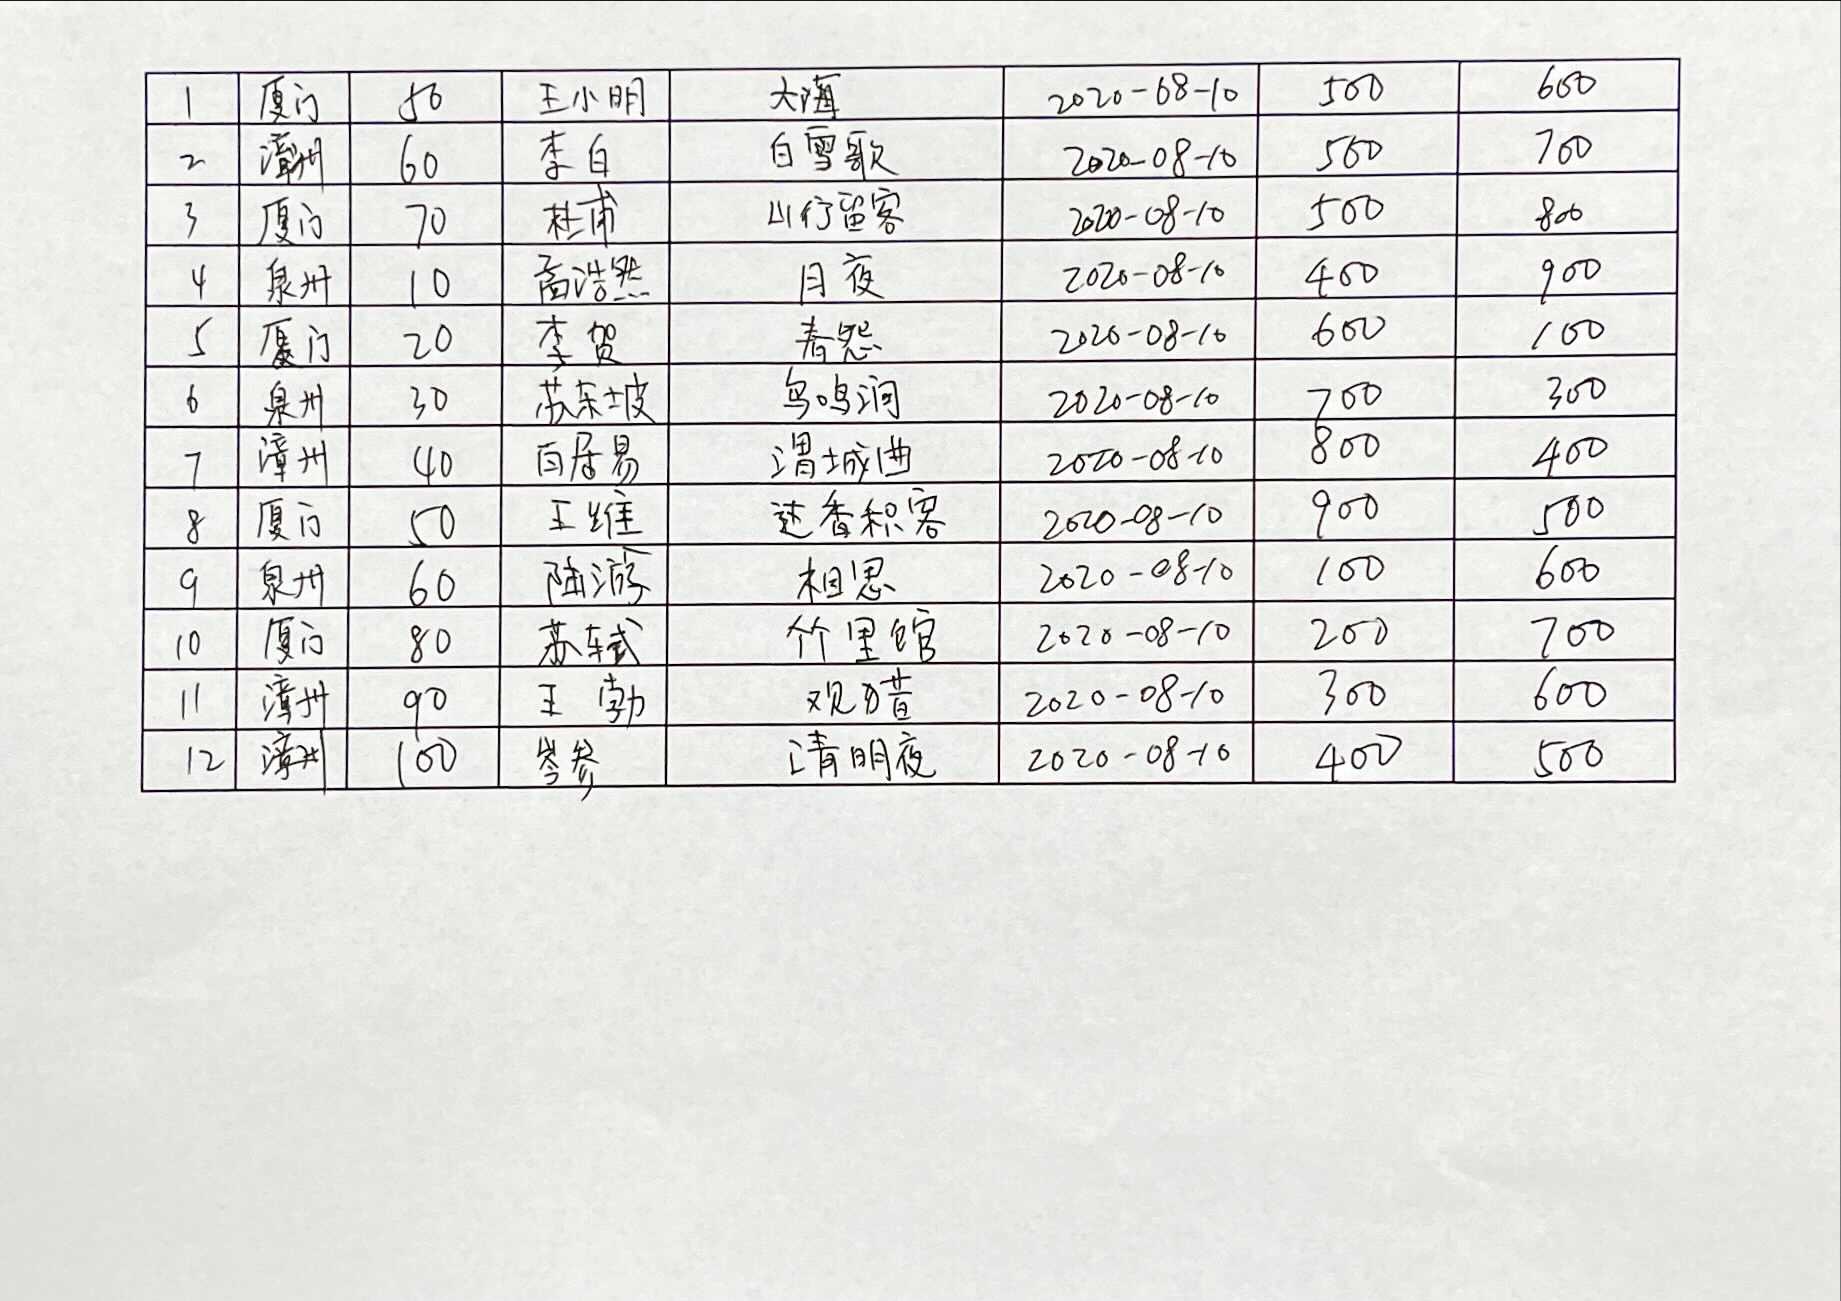 1 厦门 50 王小明 大海 2020-08-10 500 600
2 漳州 60 李白 白雪歌 2020-08-10 500 700
3 厦门 70 杜甫 山行留客 2020-08-10 500 800
4 泉州 10 孟浩然 月夜 2020-08-10 400 900
5 厦门 20 李贺 春怨 2020-08-10 600 100
6 泉州 30 苏东坡 鸟鸣涧 2020-08-10 700 300
7 漳州 40 白居易 渭城曲 2020-08-10 800 400
8 厦门 50 王维 过香积客 2020-08-10 900 500
9 泉州 60 陆游 相思 2020-08-10 100 600
10 厦门 80 苏轼 竹里馆 2020-08-10 200 700
11 漳州 90 王勃 观猎 2020-08-10 300 600
12 漳州 100 岑参 清明夜 2020-08-10 400 500